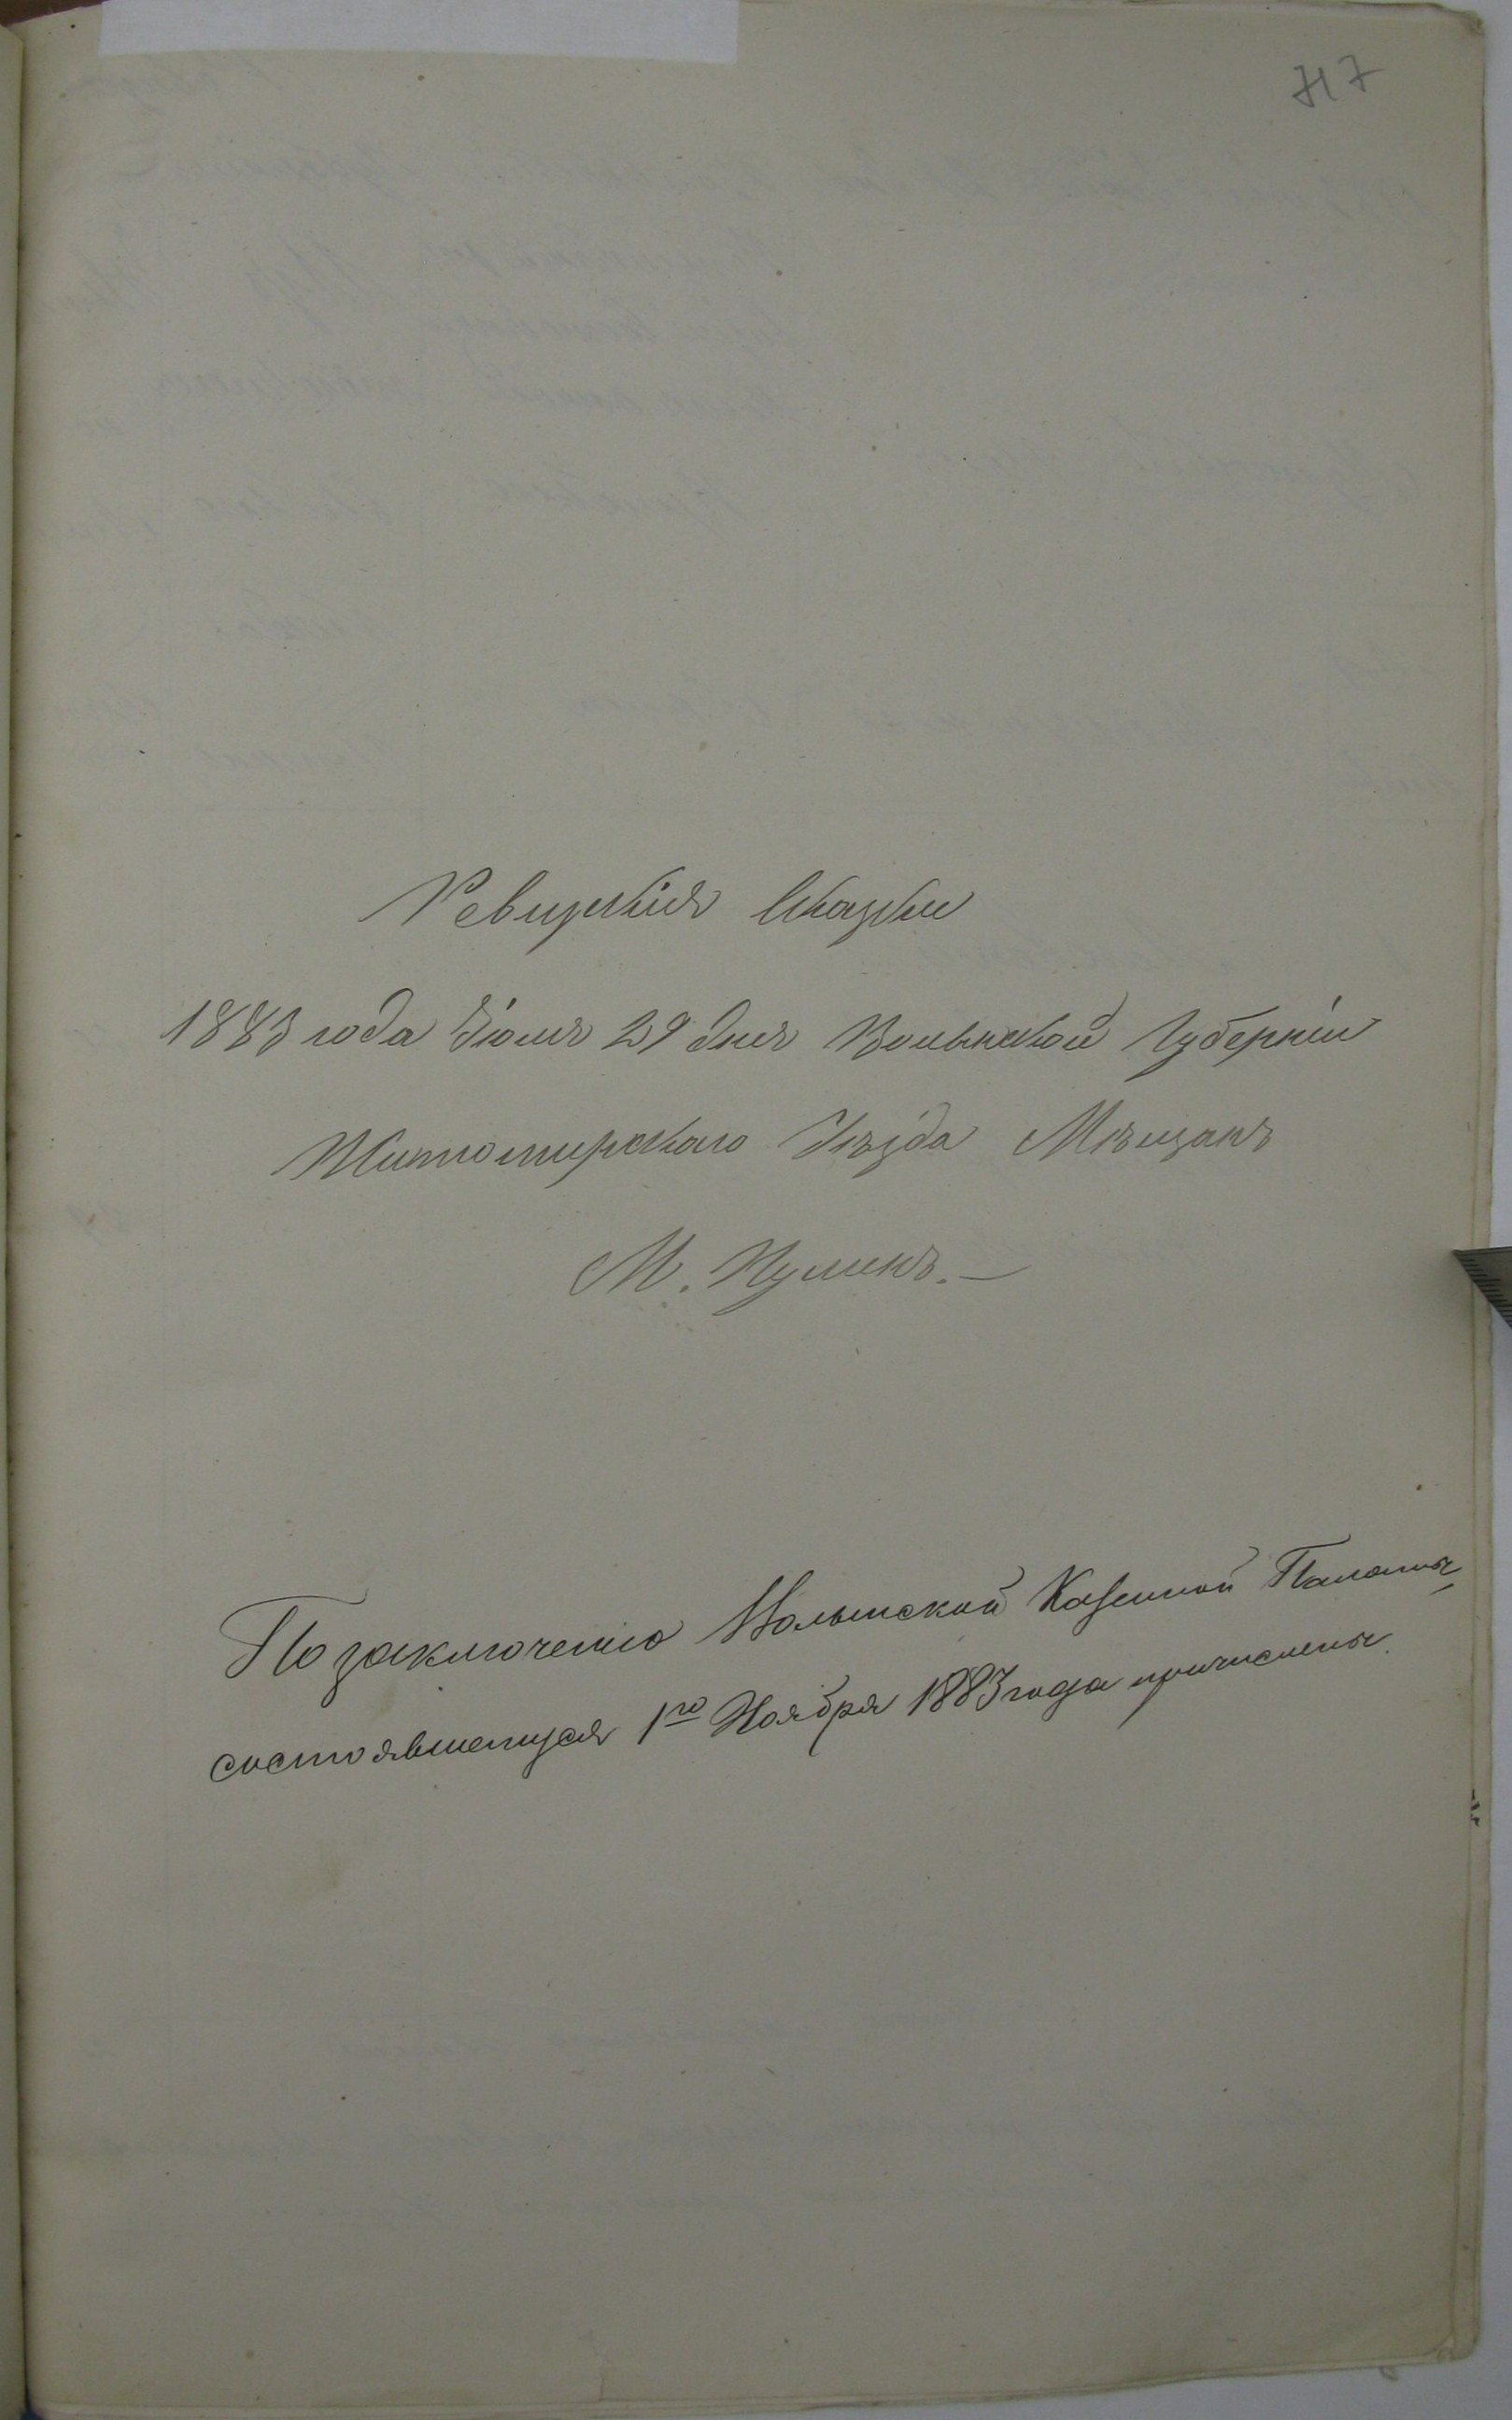 717
Ревизкія Сказки
1883 года Іюля 29 дня Волынской Губерніи
Житомирскаго Уѣзда Мѣщанъ
М. Пулинъ.—
По заключенію Волынской Казенной Палаты,
состоявшемуся 1го Ноября 1883 года причислены.